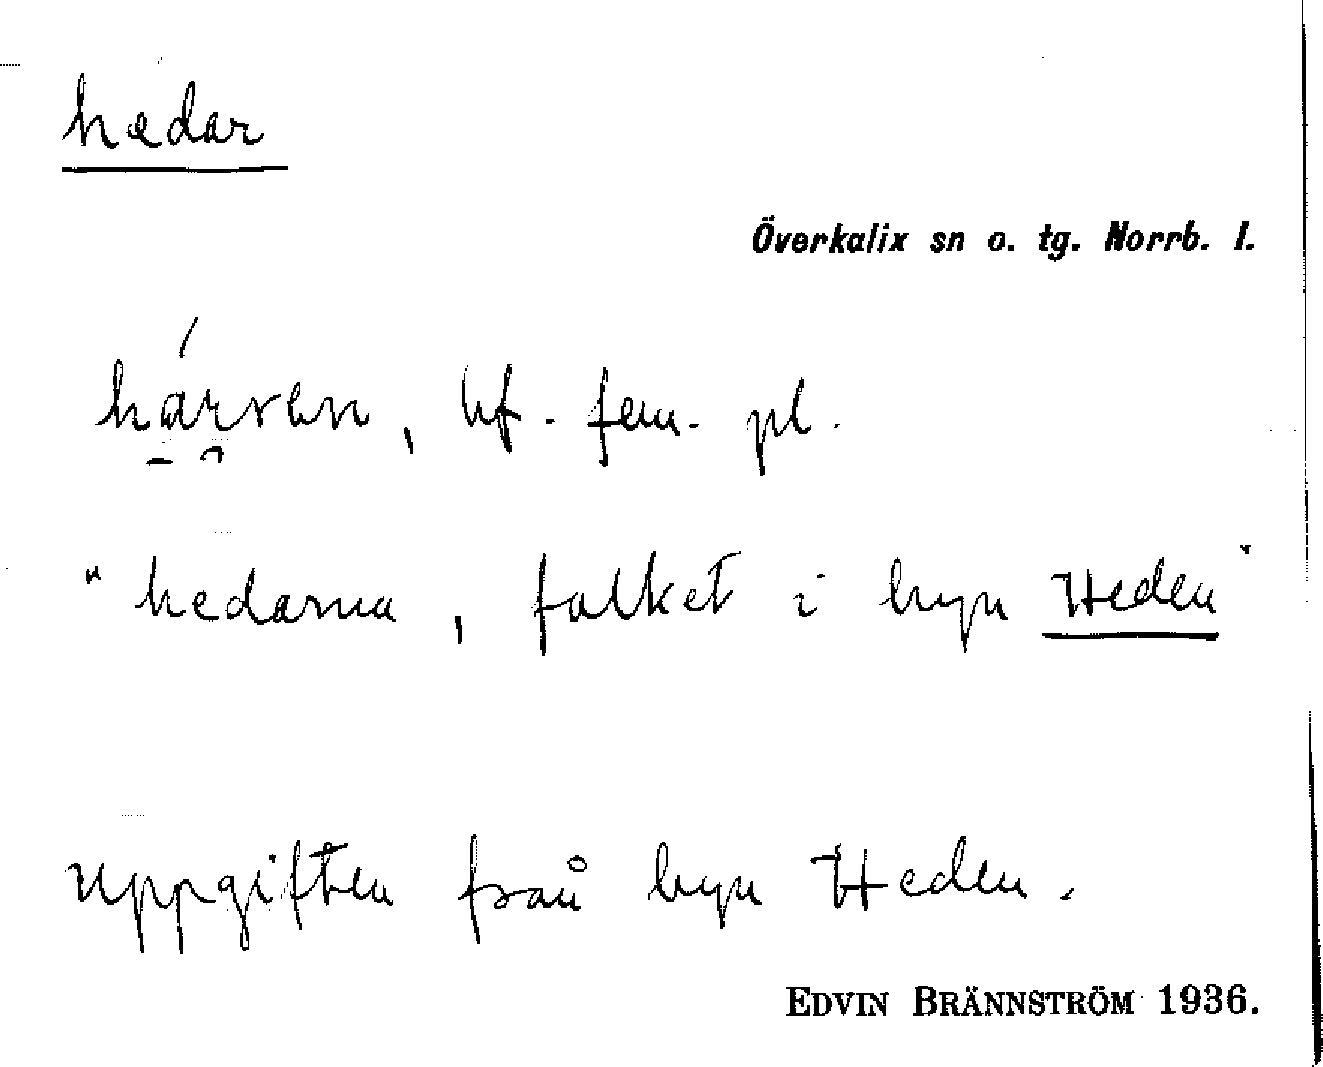 hedar
Överkalix sn o. tg. Norrb. l.
bf. fem. pl.
"hedarna, folket i byn Heden"
Uppgiften från byn Heden.
EDVIN BRÄNNSTRÖM 1936.